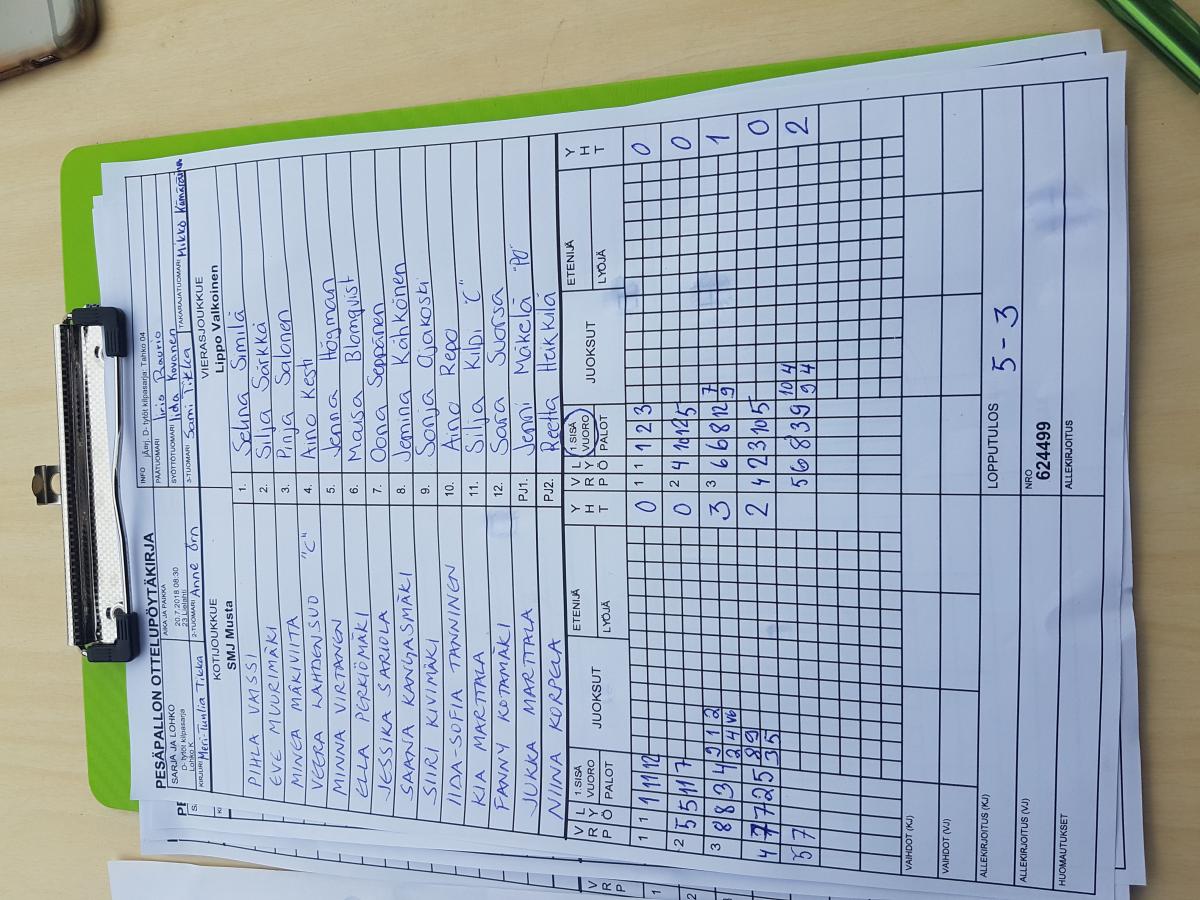 PESÄPALLON OTTELUPÖYTÄKIRJA
SARJA JA LOHKO
D- tytöt kilpasarja
Lohko K
AIKA JA PAIKKA
20.7.2018 08:30
23 Lielahti
INFO jÄerj. D- tytöt kilpasarja: Tahko 04
PÄÄTUOMARI Iiris Baurio
SYÖTTÖTUOMARI Iida Kovanen
KIRJURI Meri-Tuulia Tikka
2-TUOMARI Anne Örn
3-TUOMARI Sami Tikka
TAKARAJATUOMARI Mikko Kämäräinen
KOTIJOUKKUE
SMJ Musta
VIERASJOUKKUE
Lippo Valkoinen
PIHLA VAISSI 1. Selina Similä
EVE MUURIMÄKI 2. Silja Särkkä
MINEA MÄKIVIITA 3. Pinja Salonen
VEERA LAHDENSUO "C" 4. Aino Kesti
MINNA VIRTANEN 5. Jenna Högman
ELLA PERKIÖMÄKI 6. Maisa Blomqvist
JESSIKA SARIOLA 7. Oona Seppänen
SAANA KANGASMÄKI 8. Jemina Kähkönen
SIIRI KIVIMÄKI 9. Sonja Ojakoski
IIDA-SOFIA TANNINEN 10. Aino Repo
KIA MARTTALA 11. Silja Kilpi "C"
FANNY KOTAMÄKI 12. Sara Suorsa
JUKKA MARTTALA PJ1. Jenni Mäkelä "PO"
NIINA KORPELA PJ2. Reetta Heikkilä
V R P L Y Ö 1.SISÄ VUORO PALOT JUOKSUT ETENIJÄ LYÖJÄ Y H T V R P L Y Ö 1.SISÄ VUORO PALOT JUOKSUT ETENIJÄ LYÖJÄ Y H T
1 1 1 11 12 0 1 1 1 2 3 0
2 5 5 11 7 0 2 4 10 12 5 0
3 8 8 3 4 9 1 2 2 4 V6 3 3 6 6 8 12 7 9 1
4 7 7 2 5 8 9 3 5 2 4 2 3 10 5 0
5 7 5 6 8 3 9 10 4 9 4 2
VAIHDOT (KJ)
VAIHDOT (VJ)
ALLEKIRJOITUS (KJ)
LOPPUTULOS 5 - 3
ALLEKIRJOITUS (VJ)
NRO
624499
HUOMAUTUKSET
ALLEKIRJOITUS